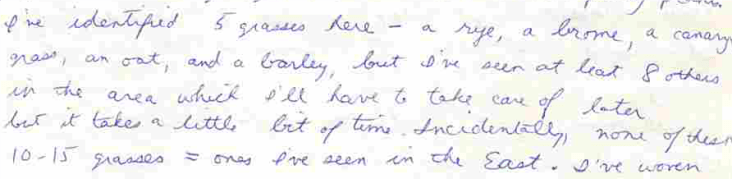 I've identified 5 grasses here – a rye, a brome, a canary
grass, an oat, and a barley, but I've seen at least 8 others
in the area which I'll have to take care of later
but it takes a little bit of time. Incidentally, none of these
10-15 grasses = ones I've seen in the East. I've woven